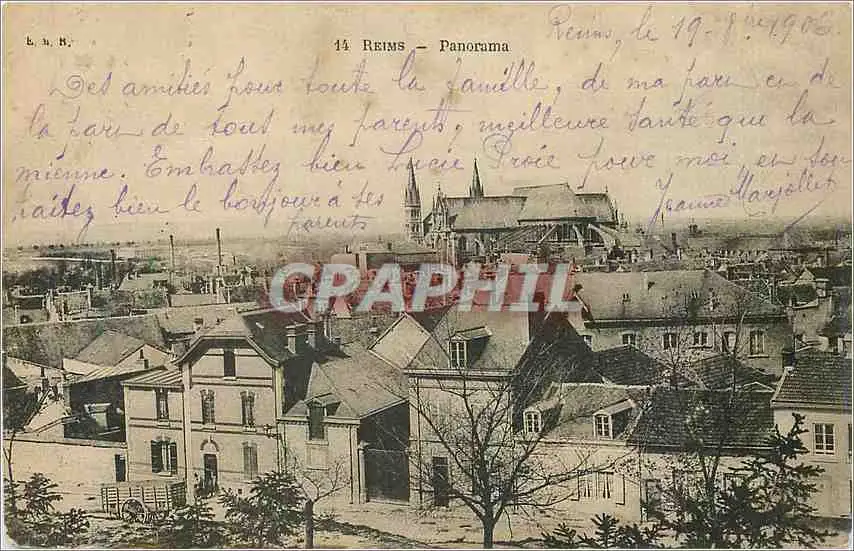 E. M. R.
14 REIMS — Panorama
Reims, le 19 - 1906
Des amitiés pour toute la famille, de ma part et de
la part de tous mes parents, meilleure santé que la
mienne. Embrassez bien Lucie Proie pour moi, en
faitez bien le bonjour à ses Jeanne Marjollet
parents
CPARAMA
CRAPHIL